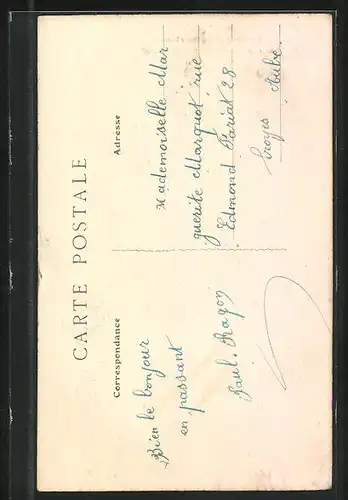 CARTE POSTALE
Correspondance
Bien le bonjour
en passant
Paul. Ragon
Adresse
Mademoiselle Mar
guerite Marquot rue
Edmond Pariat 28
Troyes Aube.